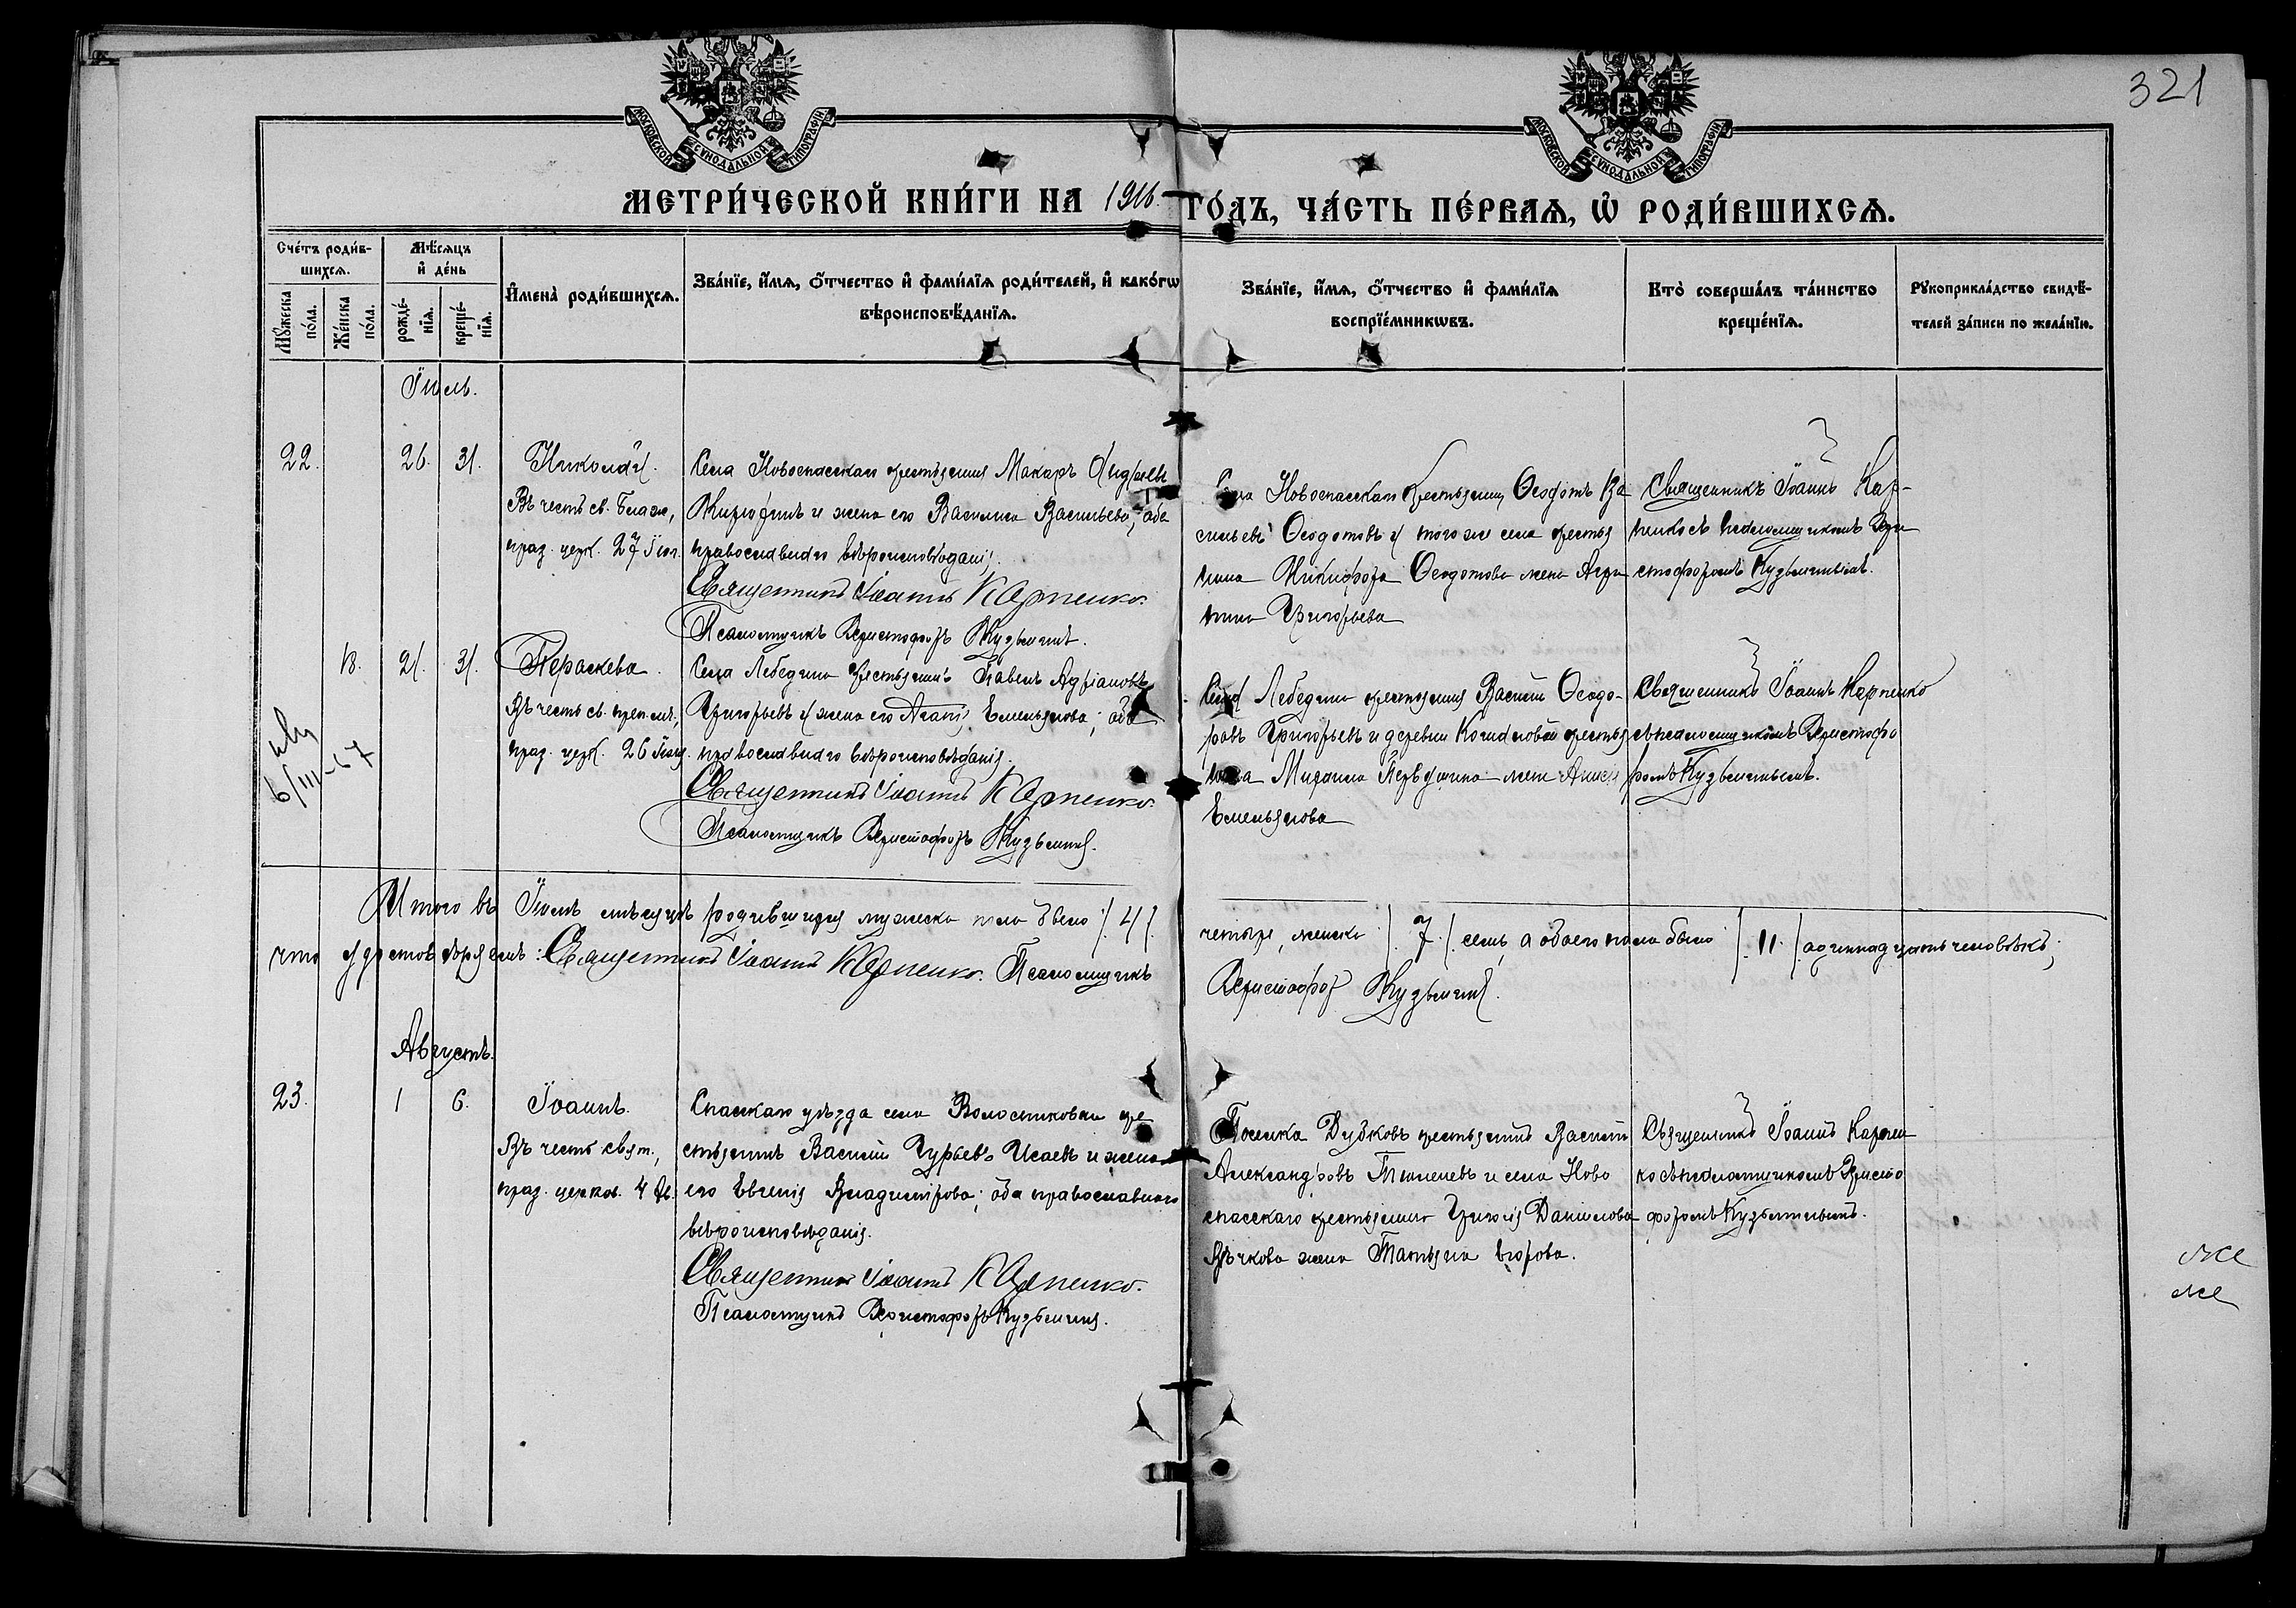 321
МОСКОВСКОЙ СѴНОДАЛЬНОЙ ТИПОГРАФІИ
МОСКОВСКОЙ СѴНОДАЛЬНОЙ ТИПОГРАФІИ
МЕТРИ́ЧЕСКОЙ КНИ́ГИ НА 1916 ГО́ДЪ, ЧА́СТЬ ПЕ́РВАѦ, Ѡ҆ РОДИ́ВШИХСѦ.
Сче́тъ роди́в-
шихсѧ.
Мꙋ́жеска по́ла.
Же́нска по́ла.
Мѣ́сѧцъ
и҆ де́нь
рожде́-
нїѧ.
креще́-
нїѧ.
И҆мена̀ роди́вшихсѧ.
Зва́нїе, и҆́мѧ, ѻ҆́тчество и҆ фами́лїѧ роди́телей, и҆ како́гѡ
вѣроисповѣ́данїѧ.
Зва́нїе, и҆́мѧ, ѻ҆́тчество и҆ фами́лїѧ
воспрїе́мникѡвъ.
Кто̀ соверша́лъ та́инство
креще́нїѧ.
Рꙋкоприкла́дство свидѣ́-
телей за́писи по жела́нїю.
Іюль.
22. 26. 31. Николай.
Въ честь св. Блаж.,
праз. церк. 27 Іюл.
Села Новоспасскаго крестьянинъ Макаръ Андреевъ
и жена его Василиса Васильева, оба
православнаго вѣроисповѣданія.
Священникъ Іоаннъ Карпенко.
Псаломщикъ Христофоръ Кузьминъ.
Села Новоспасскаго крестьянинъ Ѳеодотъ Ва
сильевъ Ѳедотовъ и того же села крестья
нина Никифора Ѳедотова жена Агри
пина Григорьева
Священникъ Іоаннъ Кар-
пенко съ псаломщикомъ Хри
стофоромъ Кузьминымъ.
18. 21. 31. Параскева.
Въ честь св. преп. муч.,
праз. церк. 26 Іюля.
Села Лебедина крестьянинъ Павелъ Адріановъ
Григорьевъ и жена его Агаѳія Емельянова; оба
православнаго вѣроисповѣданія.
Священникъ Іоаннъ Карпенко.
Псаломщикъ Христофоръ Кузьминъ.
Села Лебедина крестьянинъ Василій Ѳеодо-
ровъ Григорьевъ и деревни крестья
нина Михаила жена
Емельянова
Священникъ Іоаннъ Карпенко
съ псаломщикомъ Христофо
ромъ Кузьминымъ.
6/III-67
Итого въ Іюлѣ мѣсяцѣ родившихся мужеска пола было /.4/. четыре, женска /.7./ семь, а обоего пола было /.11./ одиннадцать человѣкъ;
что удостовѣряемъ: Священникъ Іоаннъ Карпенко. Псаломщикъ Христофоръ Кузьминъ.
Августъ.
23. 1 6. Іоаннъ.
Въ честь свят.,
праз. церков. 4 Ав.
Спасскаго уѣзда села Волостниковки кре
стьянинъ Василій Гурьевъ Исаевъ и жена
его Евгенія Владимірова; оба православнаго
вѣроисповѣданія.
Священникъ Іоаннъ Карпенко.
Псаломщикъ Христофоръ Кузьминъ.
Поселка Дубковъ крестьянинъ Василій
Александровъ Тюменевъ и села Ново
спасскаго крестьянина Григорія Данилова
жена Татьяна Егорова.
Священникъ Іоаннъ Карпен
ко съ псаломщикомъ Христо
форомъ Кузьминымъ.
же
же